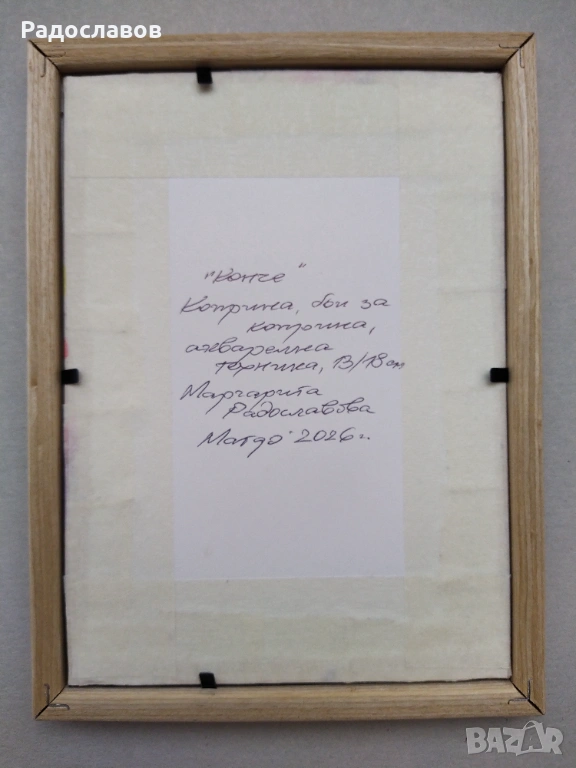 Радославов
"Конче"
Коприна, бои за
коприна,
акварелна
техника, 13/18 см
Маргарита
Радославова
Магдо' 2026 г.
BAZAR